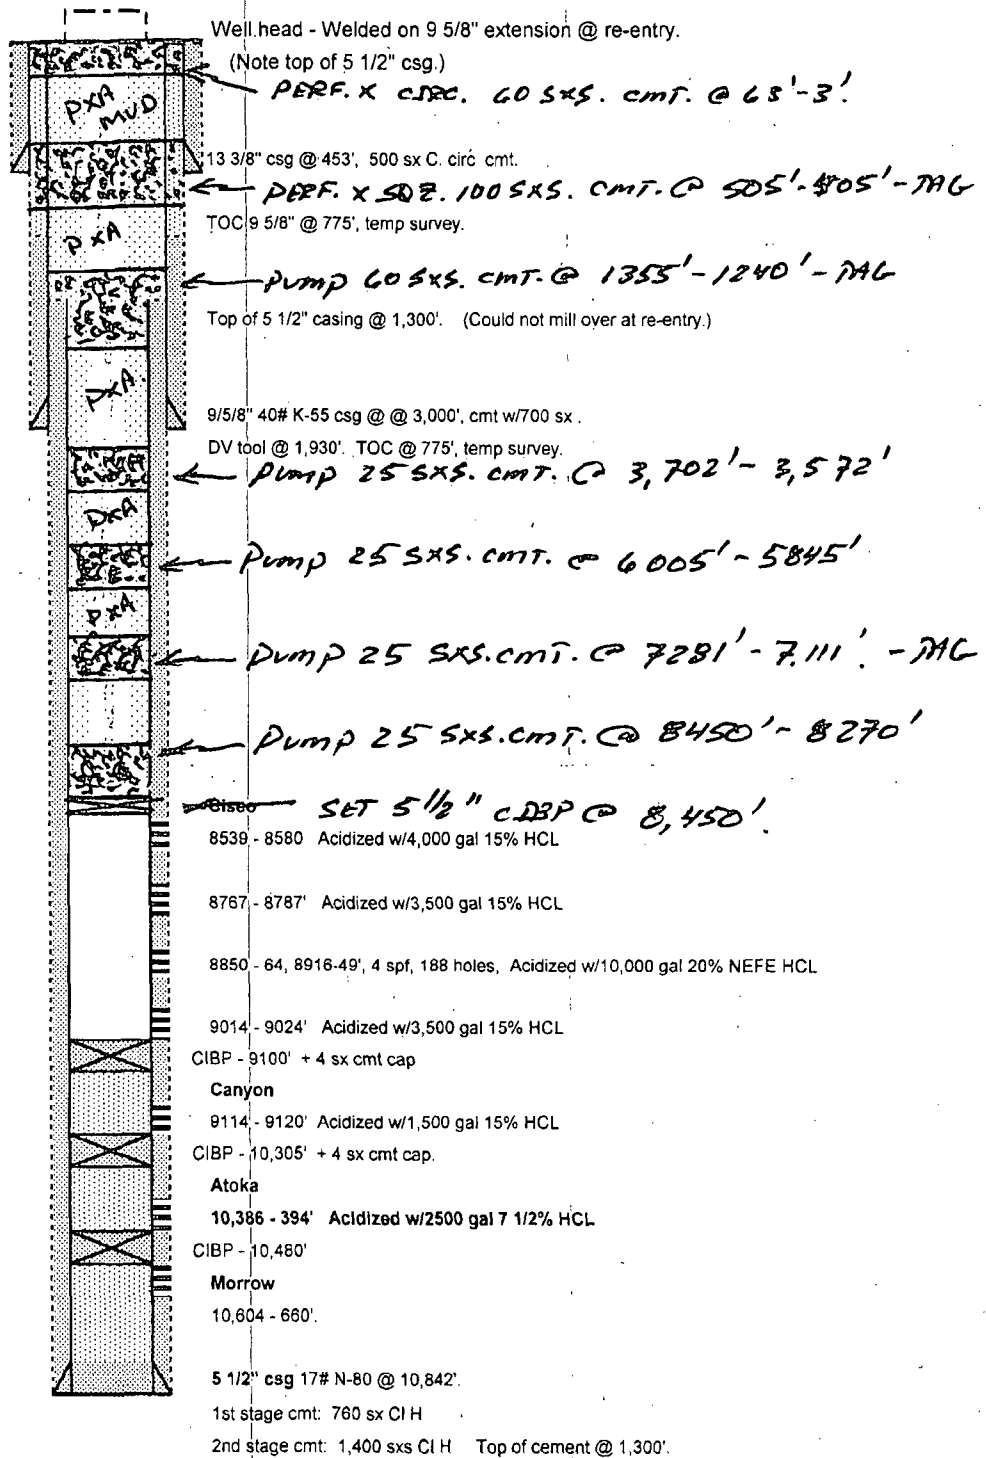 Well head - Welded on 9 5/8" extension @ re-entry.
(Note top of 5 1/2" csg.)
PERF. X CIRC. 60 SXS. CMT. @ 63'-3'.
PXA
MUD
13 3/8" csg @ 453', 500 sx C. circ cmt.
PERF. X SQZ. 100 SXS. CMT. @ 505'-405'-TAG
TOC 9 5/8" @ 775', temp survey.
PXA
PUMP 60 SXS. CMT. @ 1355'-1240'-TAG
Top of 5 1/2" casing @ 1,300'. (Could not mill over at re-entry.)
PXA
9/5/8" 40# K-55 csg @ @ 3,000', cmt w/700 sx .
DV tool @ 1,930'. TOC @ 775', temp survey.
PUMP 25 SXS. CMT. @ 3,702'-3,572'
PXA
PUMP 25 SXS. CMT. @ 6005'-5845'
PXA
PUMP 25 SXS. CMT. @ 7281'-7,111'. -TAG
PUMP 25 SXS. CMT. @ 8450'-8270'
Cisco SET 5 1/2" CIBP @ 8,450'.
8539 - 8580 Acidized w/4,000 gal 15% HCL
8767 - 8787' Acidized w/3,500 gal 15% HCL
8850 - 64, 8916-49', 4 spf, 188 holes, Acidized w/10,000 gal 20% NEFE HCL
9014 - 9024' Acidized w/3,500 gal 15% HCL
CIBP - 9100' + 4 sx cmt cap
Canyon
9114 - 9120' Acidized w/1,500 gal 15% HCL
CIBP - 10,305' + 4 sx cmt cap.
Atoka
10,386 - 394' Acidized w/2500 gal 7 1/2% HCL
CIBP - 10,480'
Morrow
10,604 - 660'.
5 1/2" csg 17# N-80 @ 10,842'.
1st stage cmt: 760 sx Cl H
2nd stage cmt: 1,400 sxs Cl H Top of cement @ 1,300'.